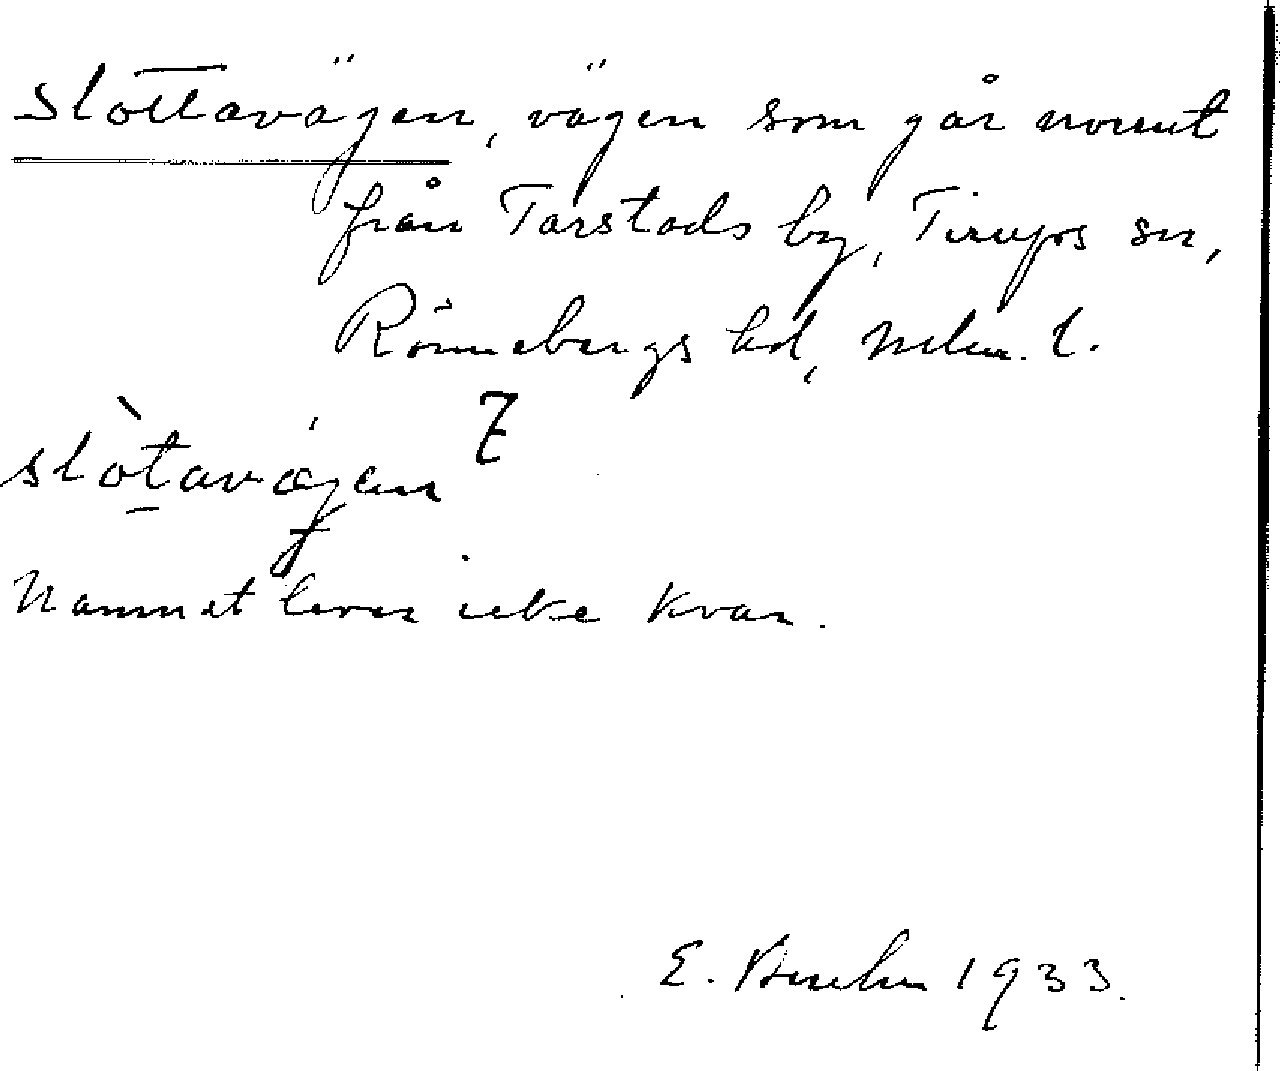 slottavägen, vägen som går norrut
från Tarstads by, Tirups sn,
Rönnebergs hd, Mlm. l.
slòtavǽgan
Namnet lever icke kvar.
E. 1933.